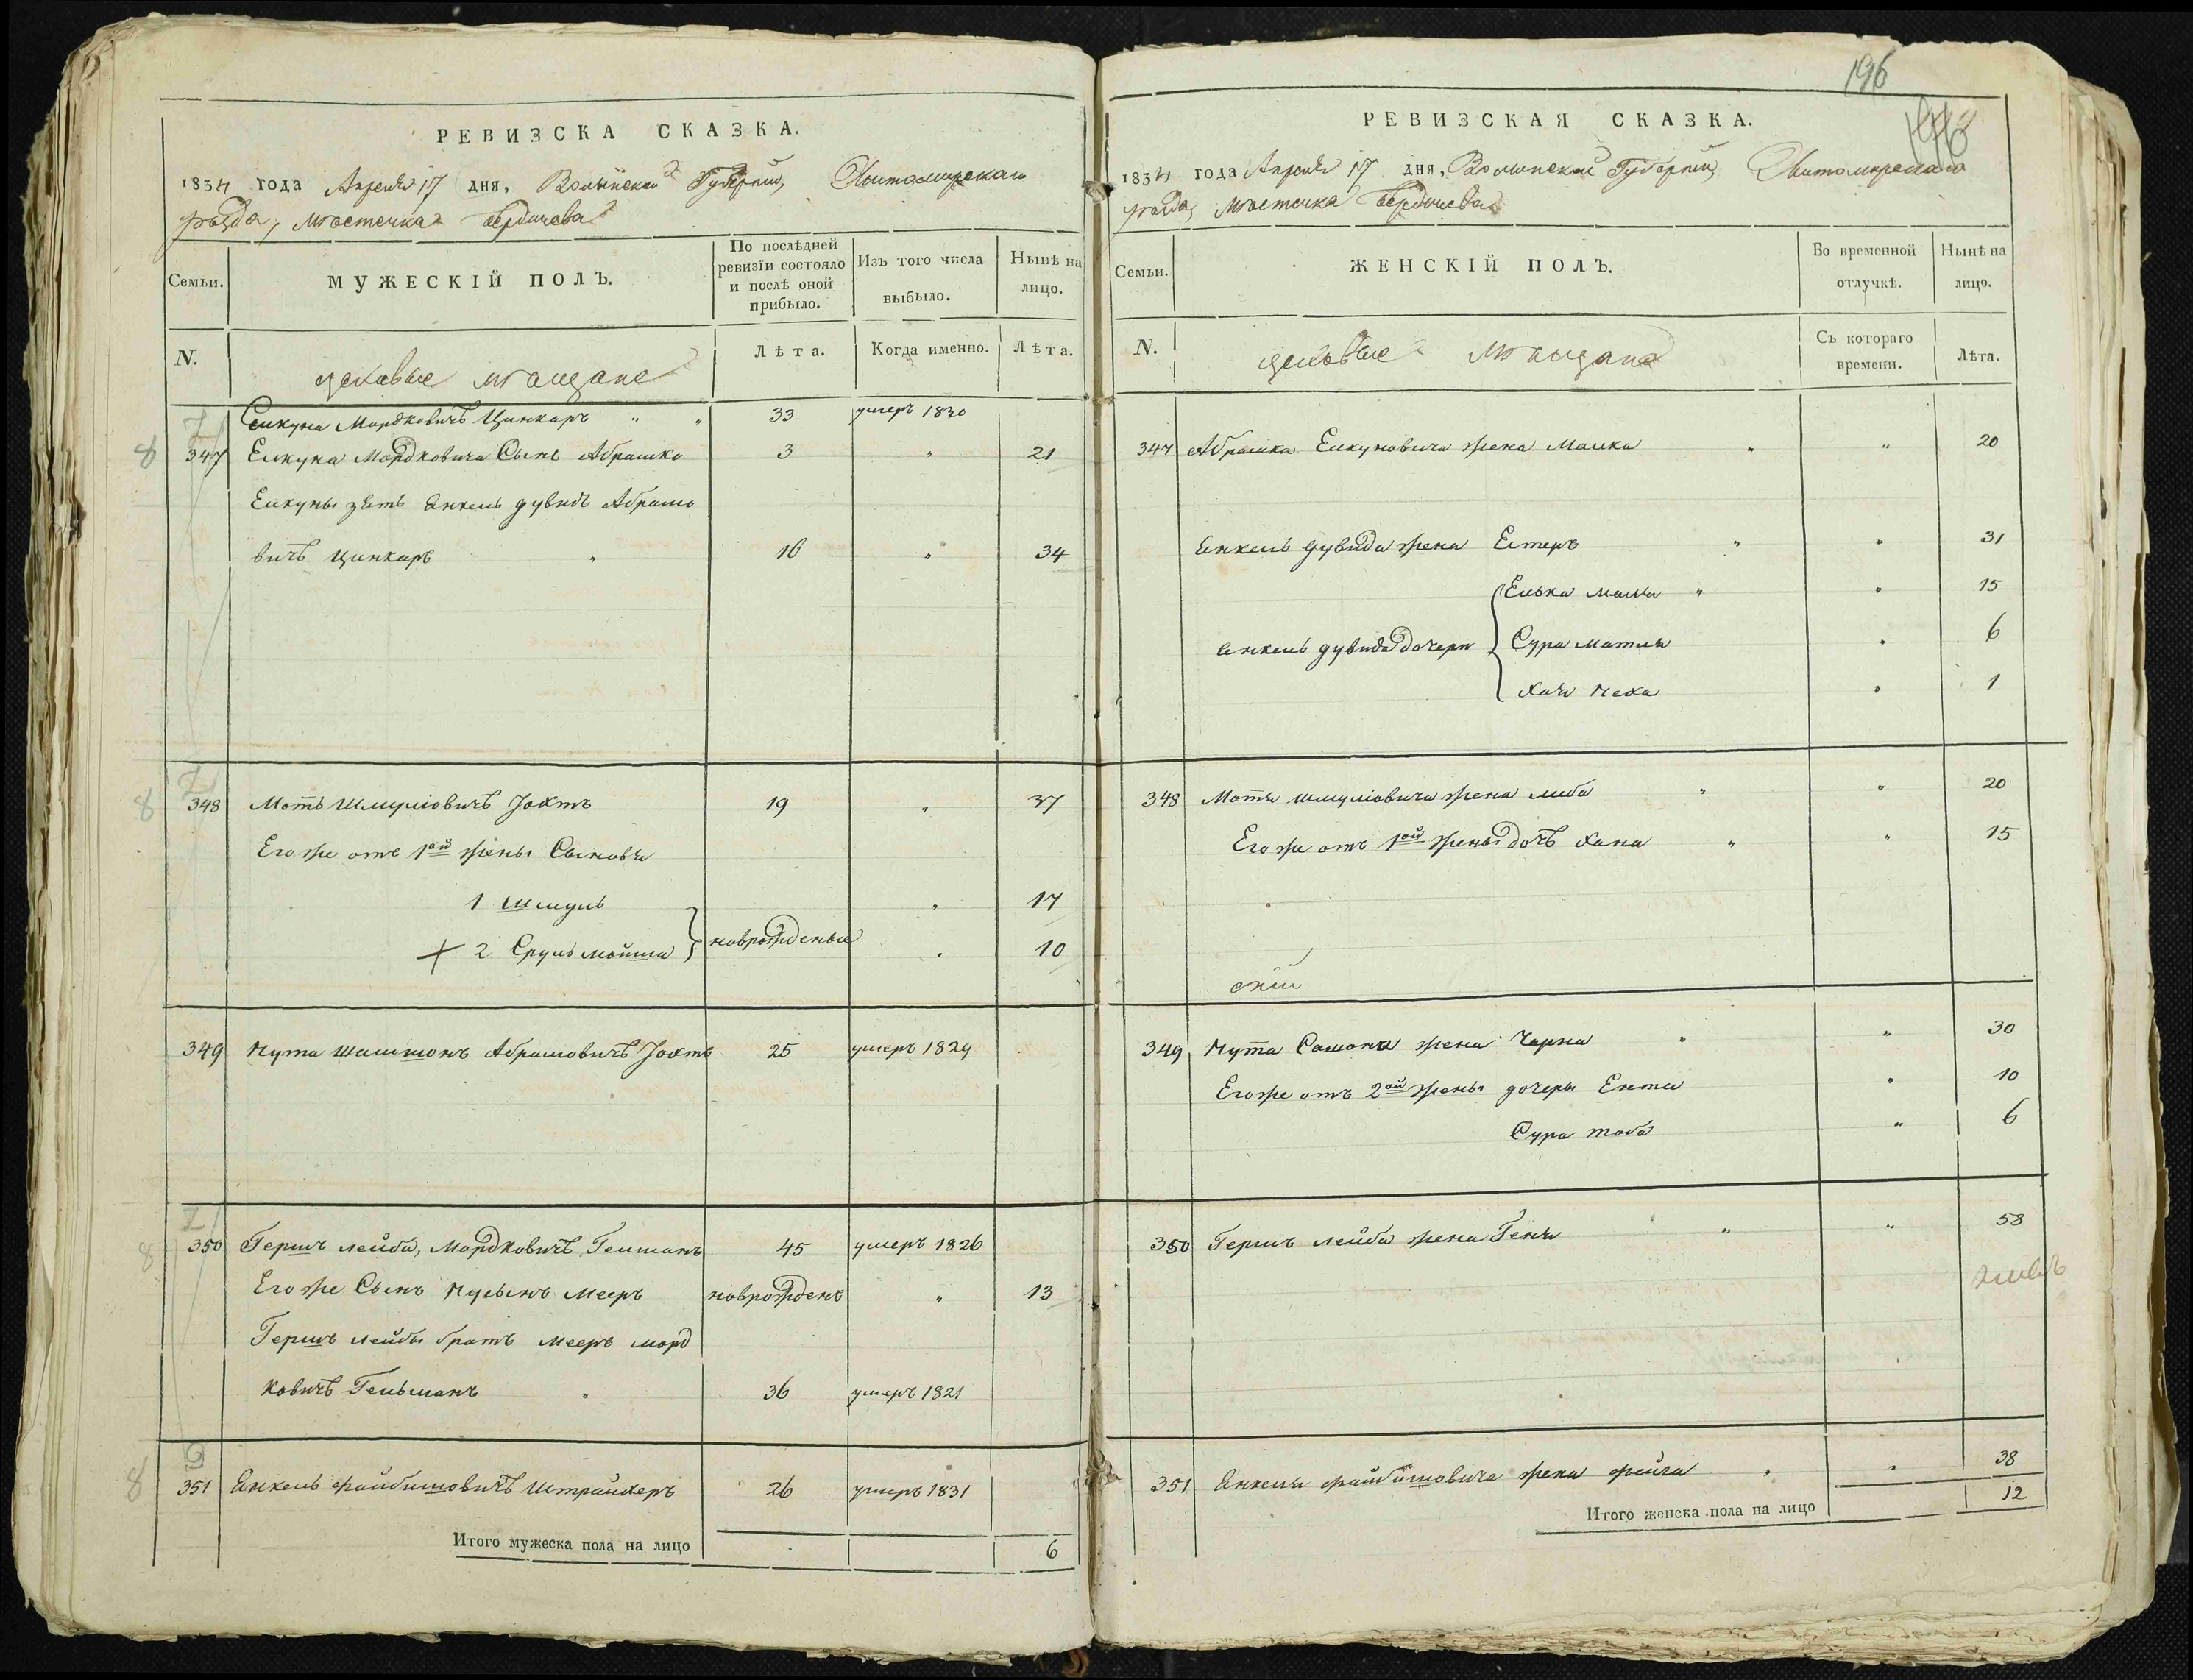 РЕВИЗСКА СКАЗКА.
1834 года Апреля 17 дня, Волынской Губерніи, Житомирскаго
уѣзда, мѣстечка Бердичева
Семьи.
МУЖЕСКІЙ ПОЛЪ.
По послѣдней ревизіи состояло и послѣ оной прибыло.
Изъ того числа выбыло.
Нынѣ на лицо.
N.
цеховые мѣщане
Лѣта.
Когда именно.
Лѣта.
Мордковичъ Цинкаръ " " 33 умеръ 1830
8 347 Мордковича Сынъ Абрашко 3 " 21
зять Янкель дувидъ Абрамо
вичъ Цинкаръ " 16 " 34
8 348 Мотъ Шмуліовичъ Іохтъ 19 " 37
Его же отъ 1ой жены Сыновья
1 Шмуль " 17
+ 2 Сруль мойша } новрожденые " 10
349 Нута Шамшонъ Абрамовичъ Іохтъ 25 умеръ 1829
8 350 Гершъ лейба, Мордковичъ, Гелманъ 45 умеръ 1826
Его же Сынъ Мееръ новрожденъ " 13
Гершъ лейбы братъ Мееръ морд
ковичъ Гельманъ " 36 умеръ 1821
8 351 Янкель файбишовичъ Штрайхеръ 26 умеръ 1831
Итого мужеска пола на лицо 6
196
РЕВИЗСКАЯ СКАЗКА.
1834 года Апреля 17 дня, Волынской Губерніи, Житомирскаго
уѣзда, мѣстечка Бердичева
Семьи.
ЖЕНСКІЙ ПОЛЪ.
Во временной отлучкѣ.
Нынѣ на лицо.
N.
цеховые мѣщане
Съ котораго времени.
Лѣта.
347 Абрашка жена Малка " " 20
Янкель дувида жена Естеръ " " 31
Енкель дувида дочери { Елька " " 15
Сура матля " 6
Хая Неха " 1
348 Мотя шмуліовича жена либа " " 20
Его же отъ 1ой жены дочъ хана " " 15
349 Нута жена Чарна " " 30
Его же отъ 2ой жены дочеры Ента " 10
Сура тоба " 6
350 Гершъ лейба жена Геня " " 58
351 Янкеля файбишовича жена фейга " " 38
Итого женска пола на лицо 12